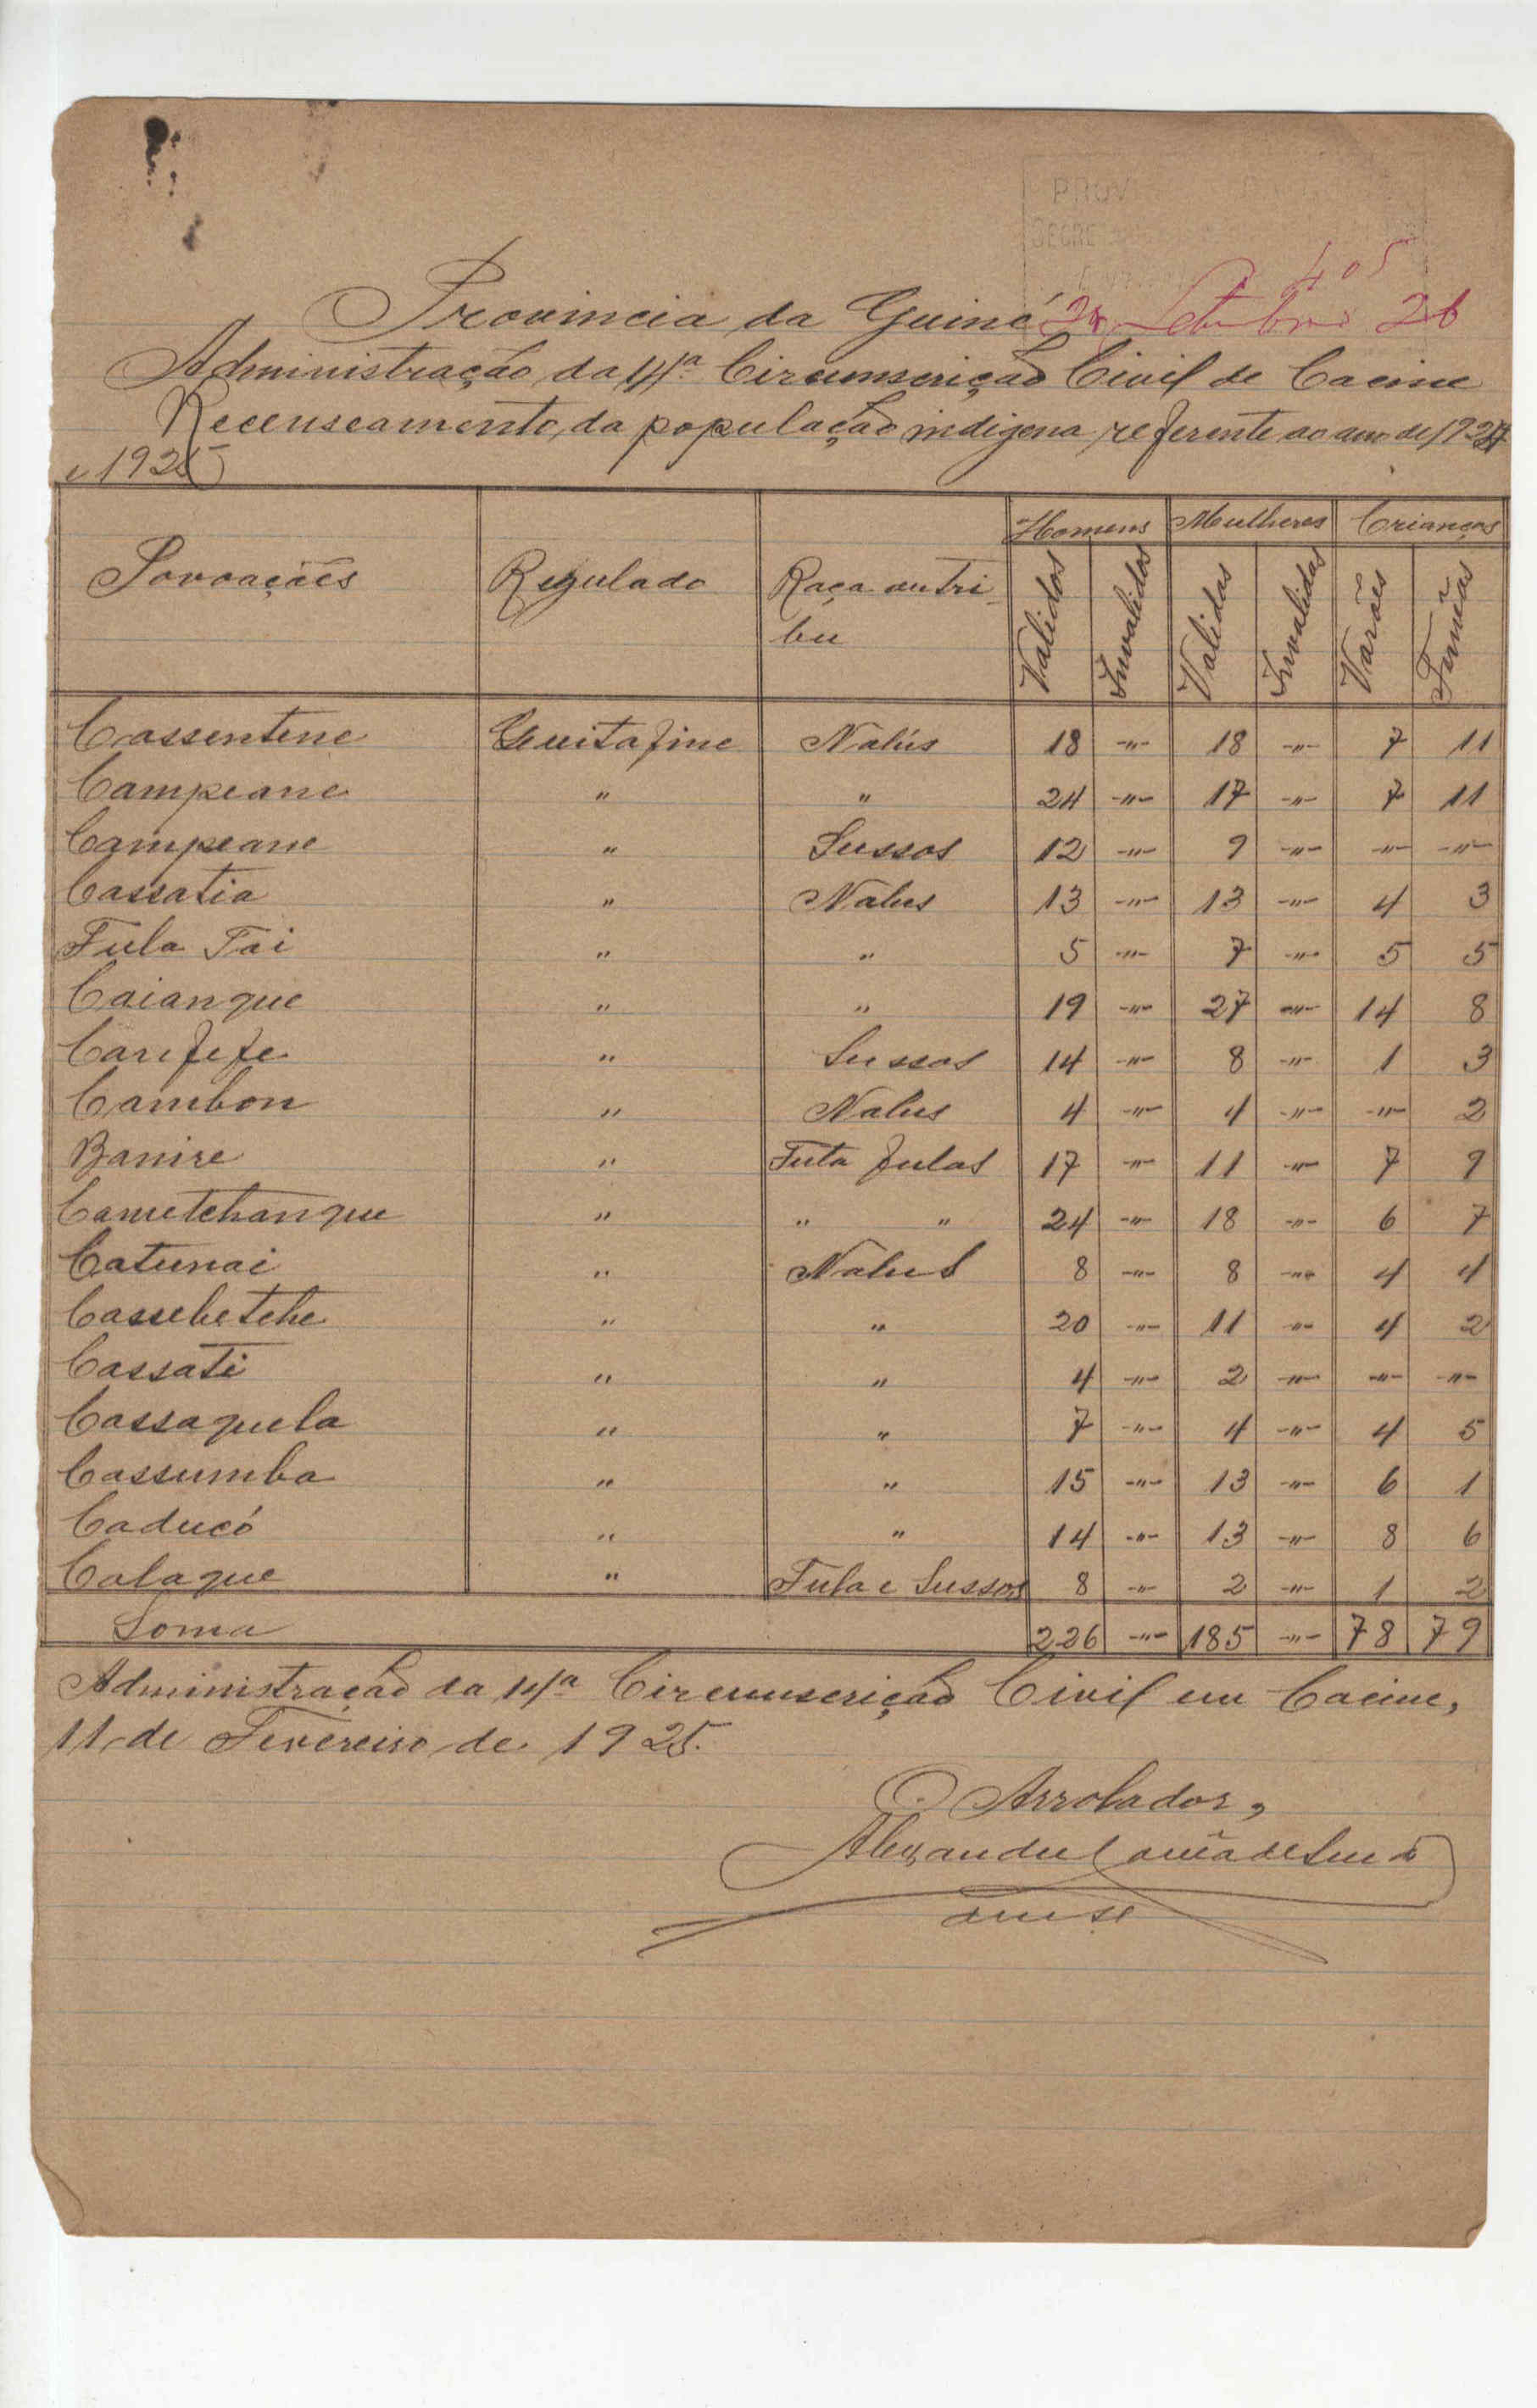 PROV
SECRE
405
Provincia da Guiné 24 Setembro 26
Administração da 14ª Circumscrição Civil de Cacine
Recenseamento da população indigena referente ao ano de 1924
e 1925
Homens Mulheres Crianças
Povoações Regulado Raça ou tri-
bu
Validos Invalidos Validas Invalidas Varões Femeas
Cassentene Guitafine Nalús 18 -"- 18 -"- 7 11
Campeane " " 24 -"- 17 -"- 7 11
Campeane " Sussos 12 -"- 9 -"- -"- -"-
Cassatia " Nalus 13 -"- 13 -"- 4 3
Fula Tai " " 5 -"- 7 -"- 5 5
Caianque " " 19 -"- 27 -"- 14 8
Canfefe " Sussos 14 -"- 8 -"- 1 3
Cambon " Nalus 4 -"- 4 -"- -"- 2
Banire " Futa fulas 17 -"- 11 -"- 7 9
Cametchanque " " " 24 -"- 18 -"- 6 7
Catunai " Nalus 8 -"- 8 -"- 4 4
Cassebetche " " 20 -"- 11 -"- 4 2
Cassati " " 4 -"- 2 -"- -"- -"-
Cassaquela " " 7 -"- 4 -"- 4 5
Cassumba " " 15 -"- 13 -"- 6 1
Caducó " " 14 -"- 13 -"- 8 6
Calaque " Fula e Sussos 8 -"- 2 -"- 1 2
Soma 226 -"- 185 -"- 78 79
Administração da 14ª Circumscrição Civil em Cacine,
11 de Fevereiro de 1925.
O Arrolador,
Alexandre